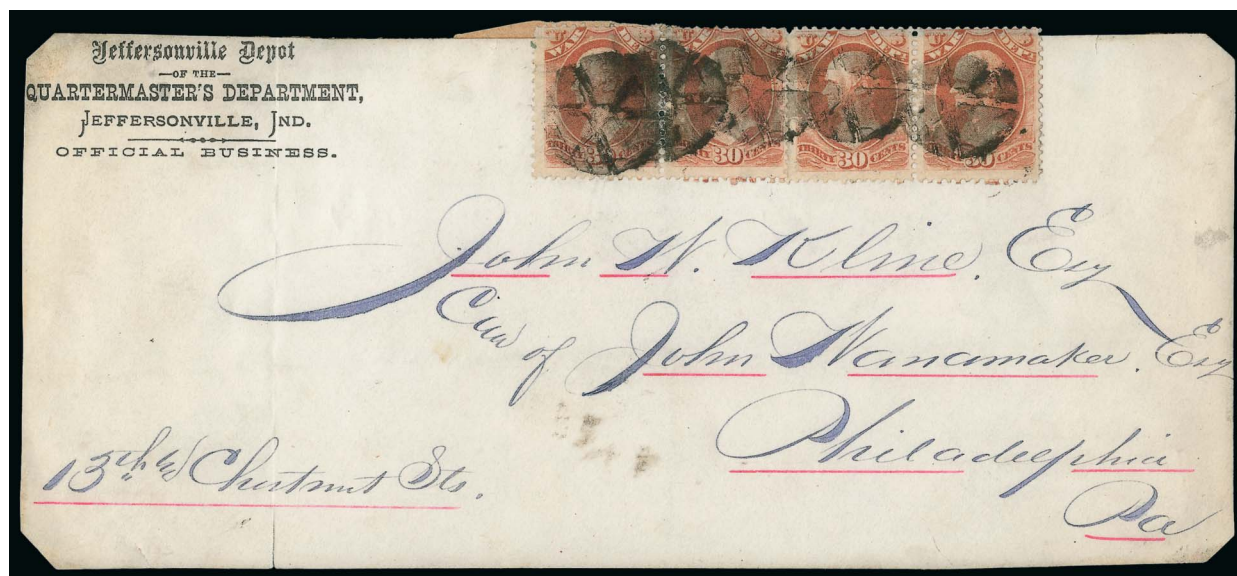 Jeffersonville Depot
—OF THE—
QUARTERMASTER'S DEPARTMENT,
JEFFERSONVILLE, IND.
OFFICIAL BUSINESS.
U S
WAR DEPT
U S
WAR DEPT
U S
WAR DEPT
U S
WAR DEPT
THIRTY 30 CENTS
THIRTY 30 CENTS
30 CENTS
John W. Kline, Esq
Care of John Wanamaker. Esq
Philadelphia
Pa
13th & Chestnut Sts.